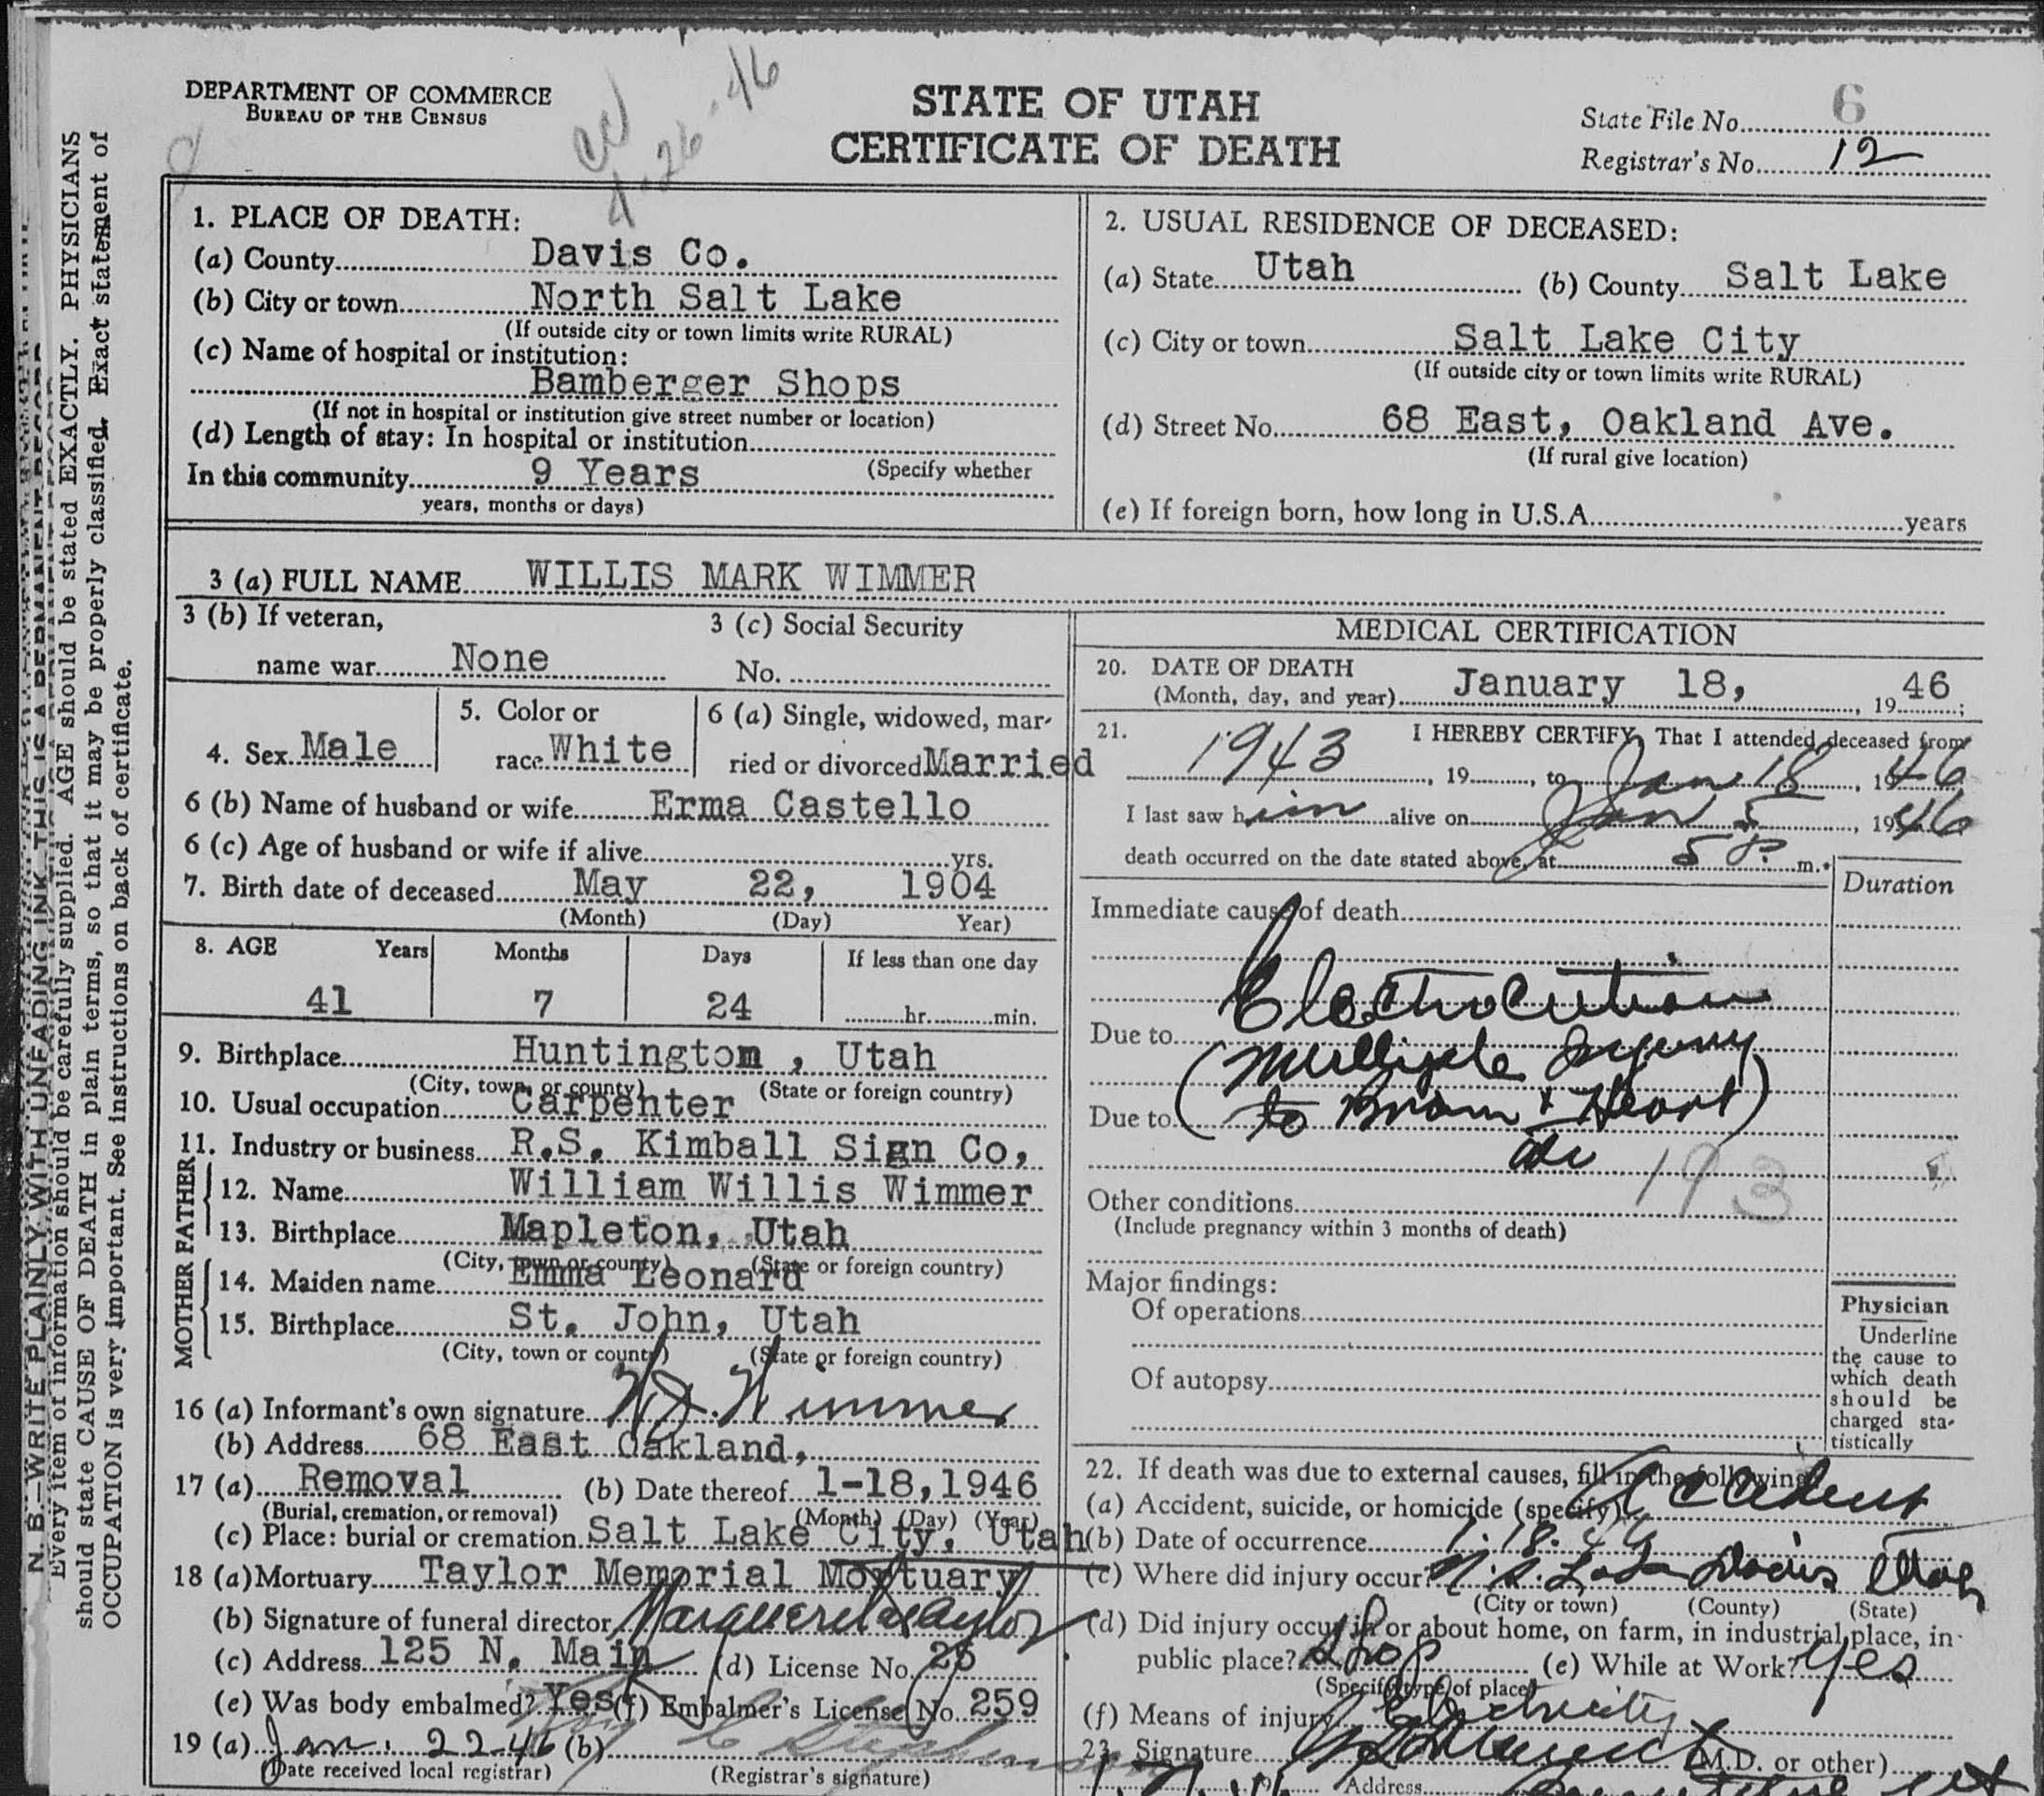 DEPARTMENT OF COMMERCE
BUREAU OF THE CENSUS
4-26-46
STATE OF UTAH
CERTIFICATE OF DEATH
State File No. 6
Registrar's No. 12
N. B.—WRITE PLAINLY, WITH UNFADING INK—THIS IS A PERMANENT RECORD
Every item of information should be carefully supplied. AGE should be stated EXACTLY. PHYSICIANS
should state CAUSE OF DEATH in plain terms, so that it may be properly classified. Exact statement of
OCCUPATION is very important. See instructions on back of certificate.
1. PLACE OF DEATH:
(a) County Davis Co.
(b) City or town North Salt Lake
(If outside city or town limits write RURAL)
(c) Name of hospital or institution:
Bamberger Shops
(If not in hospital or institution give street number or location)
(d) Length of stay: In hospital or institution
In this community 9 Years (Specify whether
years, months or days)
2. USUAL RESIDENCE OF DECEASED:
(a) State Utah (b) County Salt Lake
(c) City or town Salt Lake City
(If outside city or town limits write RURAL)
(d) Street No. 68 East, Oakland Ave.
(If rural give location)
(e) If foreign born, how long in U.S.A. years
3 (a) FULL NAME WILLIS MARK WIMMER
3 (b) If veteran,
name war None
3 (c) Social Security
No.
4. Sex Male
5. Color or
race White
6 (a) Single, widowed, mar-
ried or divorced Married
6 (b) Name of husband or wife Erma Castello
6 (c) Age of husband or wife if alive yrs.
7. Birth date of deceased May 22, 1904
(Month) (Day) Year)
8. AGE Years Months Days If less than one day
41 7 24 hr. min.
9. Birthplace Huntington, Utah
(City, town or county) (State or foreign country)
10. Usual occupation Carpenter
11. Industry or business R.S. Kimball Sign Co,
FATHER
12. Name William Willis Wimmer
13. Birthplace Mapleton, Utah
(City, town or county) (State or foreign country)
MOTHER
14. Maiden name Emma Leonard
15. Birthplace St. John, Utah
(City, town or county) (State or foreign country)
16 (a) Informant's own signature Wimmer
(b) Address 68 East Oakland,
17 (a) Removal (b) Date thereof 1-18,1946
(Burial, cremation, or removal) (Month) (Day) (Year)
(c) Place: burial or cremation Salt Lake City, Utah
18 (a) Mortuary Taylor Memorial Mortuary
(b) Signature of funeral director Taylor
(c) Address 125 N. Main (d) License No. 26
(e) Was body embalmed? Yes (f) Embalmer's License No. 259
19 (a) Jan. 22-46 (b)
(Date received local registrar) (Registrar's signature)
MEDICAL CERTIFICATION
20. DATE OF DEATH
(Month, day, and year) January 18, , 19 46;
21. I HEREBY CERTIFY, That I attended deceased from
1943, 19 , to Jan 18, 1946
I last saw him alive on Jan 5, 1946
death occurred on the date stated above, at 5 P. m.
Duration
Immediate cause of death
Electrocution
Due to (Multiple Injury
Due to to Brain & Heart)
193
Other conditions
(Include pregnancy within 3 months of death)
Major findings:
Of operations
Of autopsy
Physician
Underline
the cause to
which death
should be
charged sta-
tistically
22. If death was due to external causes, fill in the following:
(a) Accident, suicide, or homicide (specify) Accident
(b) Date of occurrence 1-18-46
(c) Where did injury occur? N. S. Lake Davis Utah
(City or town) (County) (State)
(d) Did injury occur in or about home, on farm, in industrial place, in
public place? Shop (e) While at Work? Yes
(Specify type of place)
(f) Means of injury Electricity
23. Signature (M.D. or other)
Address